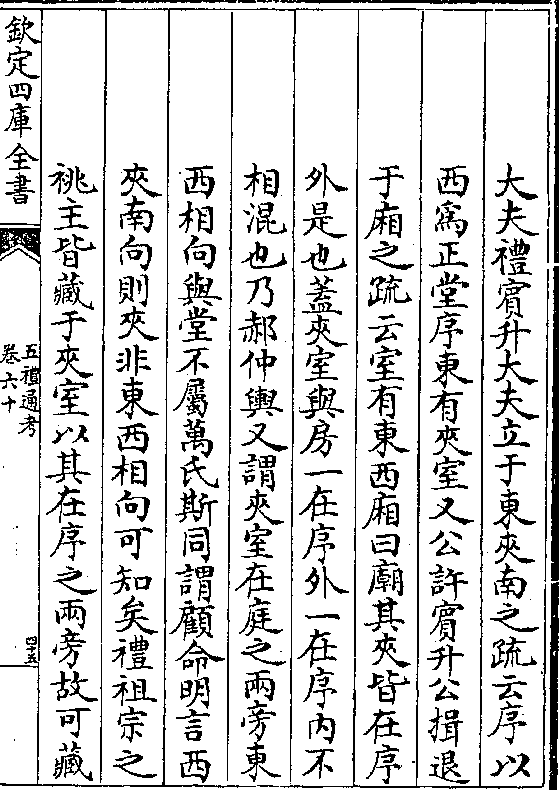 大夫禮賓升大夫立于東夾南之疏云序以
西為正堂序東有夾室又公許賓升公揖退
于廂之疏云室有東西廂曰廟其夾皆在序
外是也蓋夾室與房一在序外一在序内不
相混也乃郝仲輿又謂夾室在庭之兩旁東
西相向與堂不屬萬氏斯同謂顧命明言西
夾南向則夾非東西相向可知矣禮祖宗之
祧主皆藏于夾室以其在序之兩旁故可藏
欽定四庫全書
五禮通考
卷六十
四十五